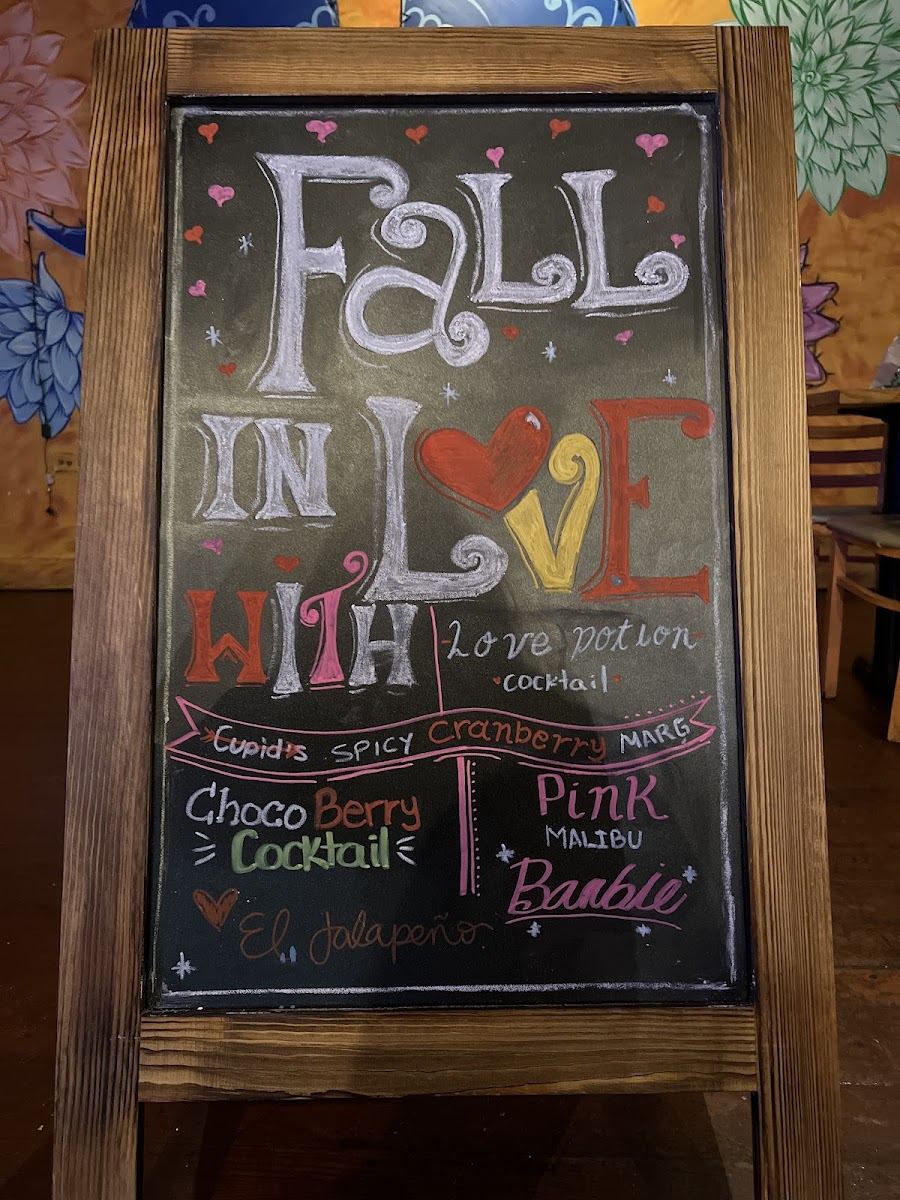 Fall
IN LOVE
WITH
Love potion
cocktail
Cupid's SPICY Cranberry MARG
Choco Berry
Cocktail
Pink
MALIBU
Barbie
El Jalapeño